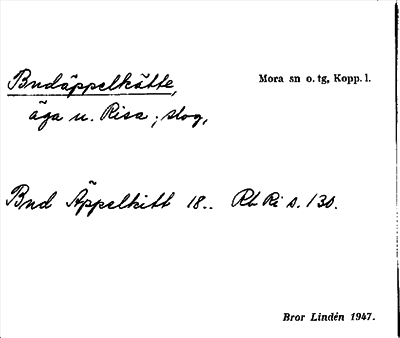 Budäppelkätte,
Mora sn o. tg, Kopp. l.
äga u. Risa; skog,
Bud Äppelkitt 18.. Rb Ri s. 130.
Bror Lindén 1947.